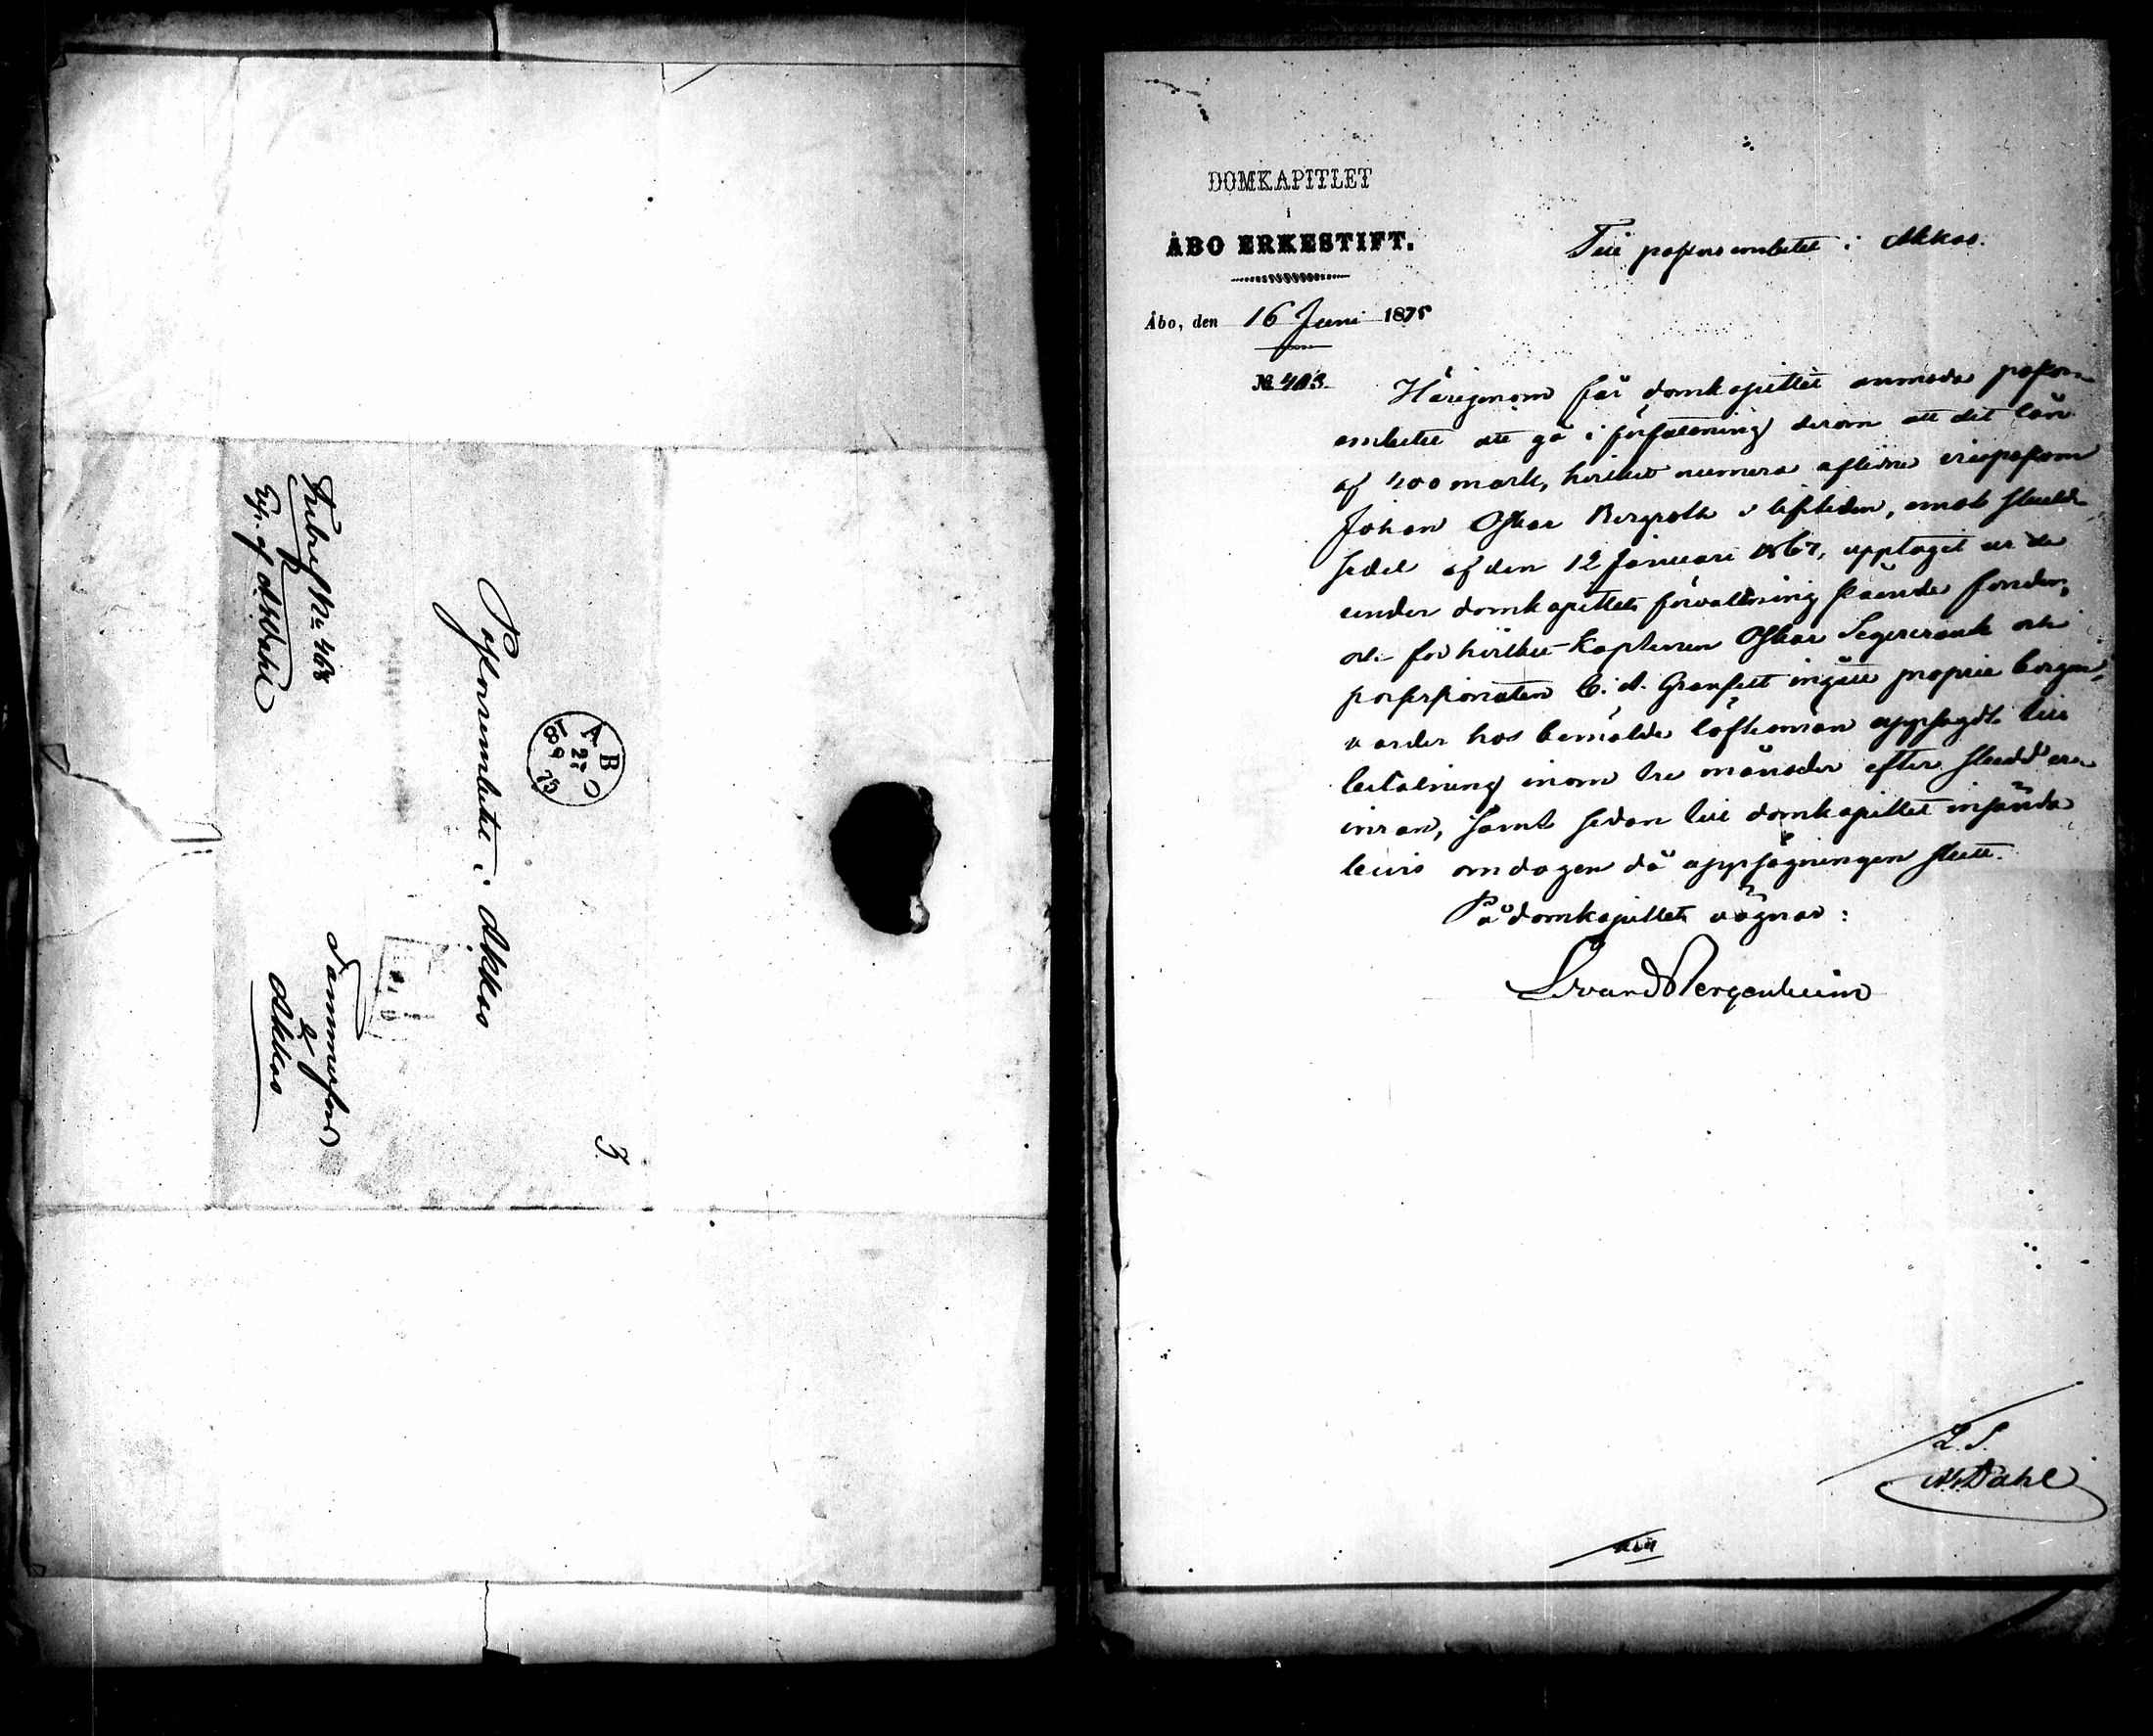 Fribref No 468
exp. af A. Dahl
Pastorsembetet i Akkas
ÅBO
18 21/6 75
Tammerfors
&
Akkas
3
DOMKAPITLET
i
ÅBO ERKESTIFT.
Åbo, den 16 Juni 1875
№ 403.
Till pastorsembetet i Akkas.
Härigenom får domkapitlet anmoda pastors-
embetet att gå i författning derom att det lån
af 400 mark, hvilket numera aflidne vicepastorn
Johan Oskar Bergroth i lifstiden, emot skulde-
sedel af den 12 Januari 1867, upptagit ur de
under domkapitlets förvaltning stående fonder,
och för hvilket kaptenen Oskar Segercrantz och
possessionaten C. A. Granfelt ingått proprie borgen,
varder hos bemälde löftesmän uppsagdt till
betalning inom tre månader efter skedd
, samt sedan till domkapitlet insända
bevis om dagen då uppsägningen skett.
På domkapitlets vägnar:
Edvard Bergenheim
L. S.
A. Dahl